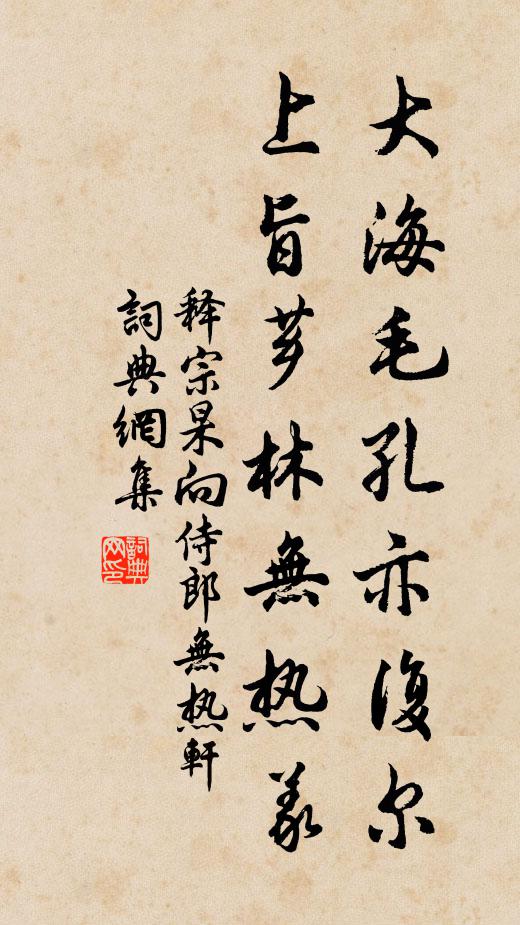 大海毛孔亦復尔
上旨芗林無热義
释宗杲向侍郎無热軒
詞典網集
詞典网印